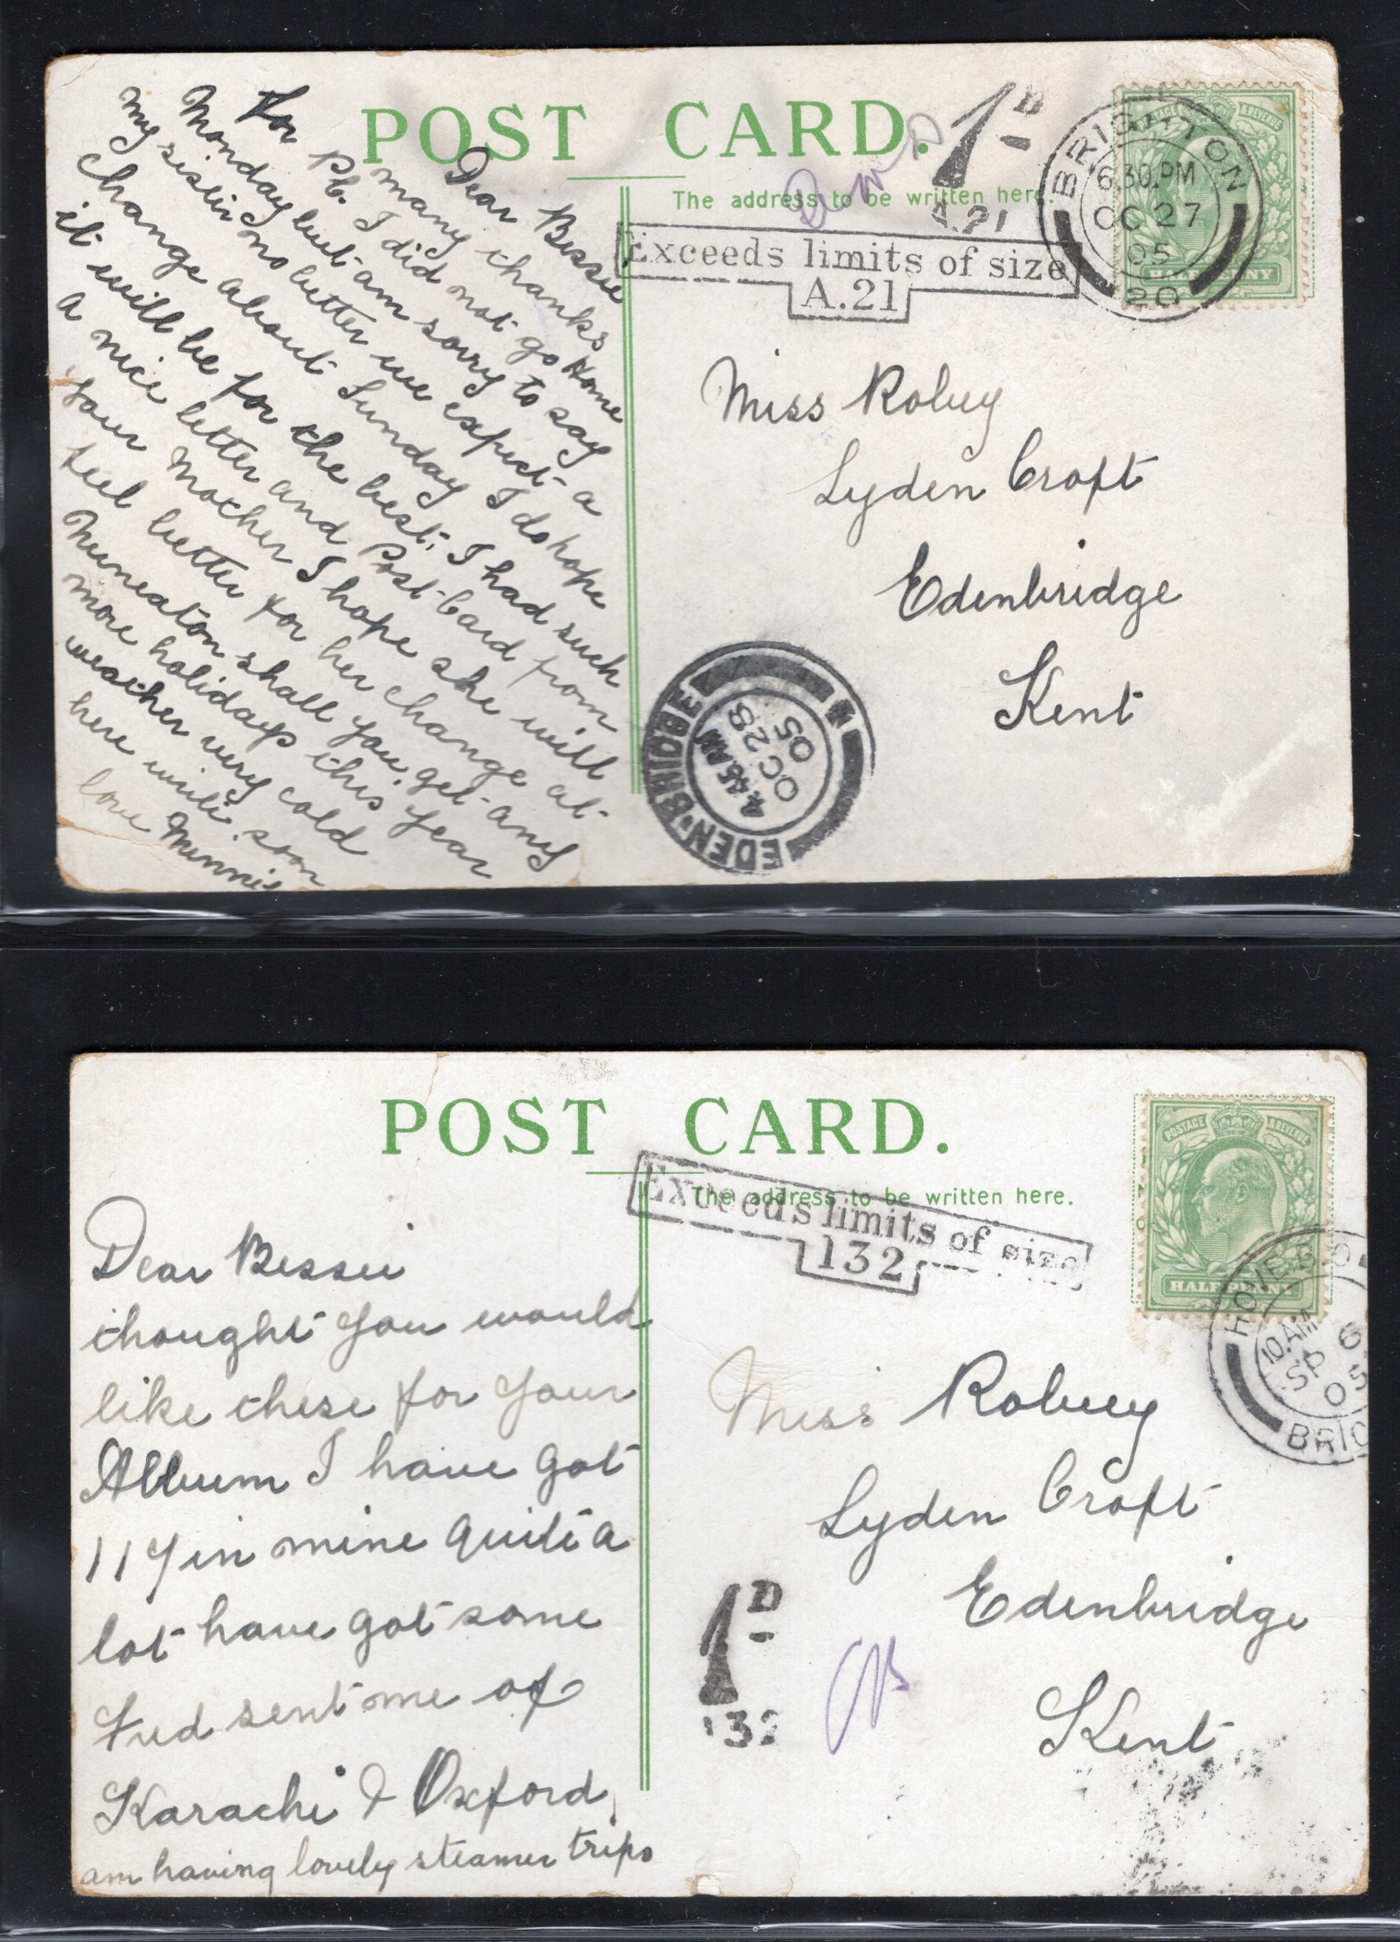 POST CARD.
The address to be written here.
1D
A.21
Exceeds limits of size
A.21
POSTAGE & REVENUE
HALFPENNY
BRIGHTON
6.30.PM
OC 27
05
20
Dear Bessie
many thanks
for Pb. I did not go Home
Monday but am sorry to say
my sister no better we expect a
change about Sunday I do hope
it will be for the best; I had such
a nice letter and Post-Card from
your Mother I hope she will
feel better for her change at
Nuneaton shall you get any
more holidays this year
weather very cold
here write soon
love Minnie
Miss Robey
Lyden Croft
Edenbridge
Kent
EDEN-BRIDGE
4.45 AM
OC 28
05
POST CARD.
The address to be written here.
Exceeds limits of size
132
POSTAGE & REVENUE
HALFPENNY
HOVE.B.O.
10.AM
SP 6
05
BRIG
Dear Bessie
thought you would
like these for your
Album I have got
117 in mine quite a
lot have got some
Fred sent me of
Karachi & Oxford,
am having lovely steamer trips
Miss Robey
Lyden Croft
Edenbridge
Kent
1D
132